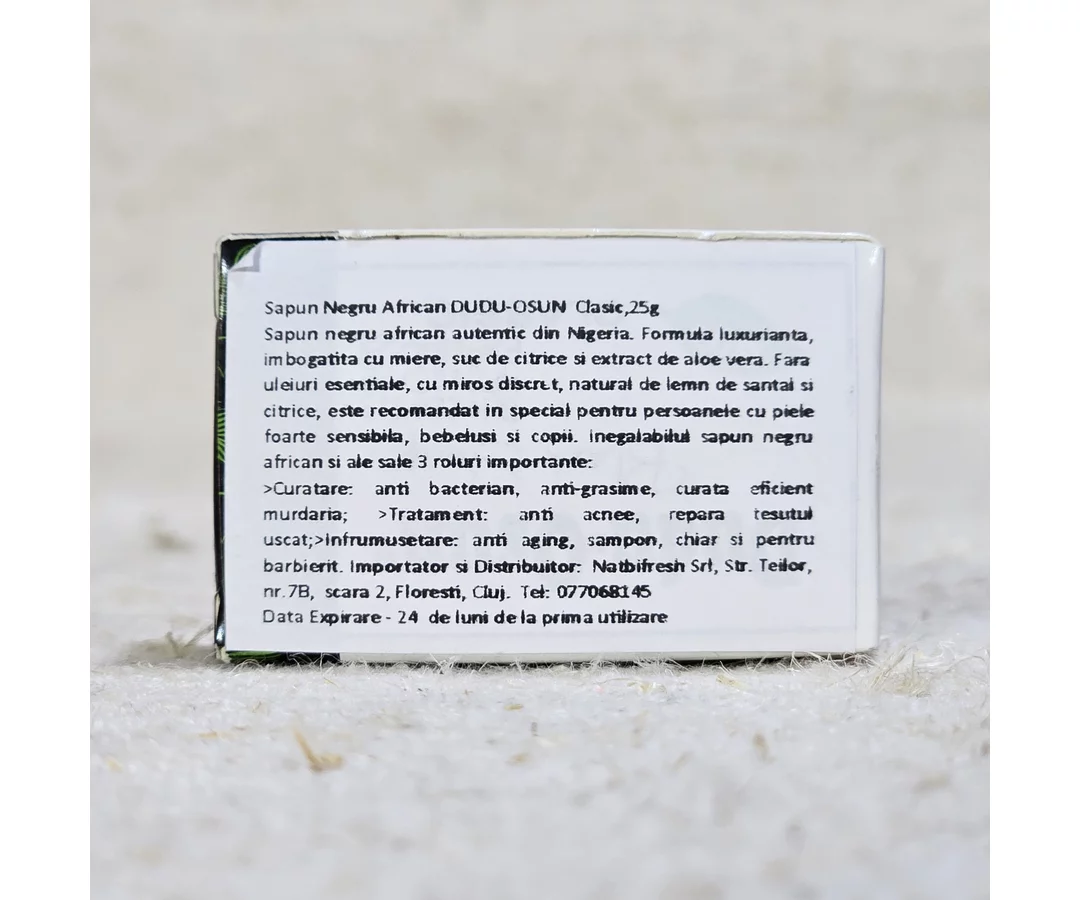 Sapun Negru African DUDU-OSUN Clasic,25g
Sapun negru african autentic din Nigeria. Formula luxurianta,
imbogatita cu miere, suc de citrice si extract de aloe vera. Fara
uleiuri esentiale, cu miros discret, natural de lemn de santal si
citrice, este recomandat in special pentru persoanele cu piele
foarte sensibila, bebelusi si copii. Inegalabilul sapun negru
african si ale sale 3 roluri importante:
>Curatare: anti bacterian, anti-grasime, curata eficient
murdaria; >Tratament: anti acnee, repara tesutul
uscat;>Infrumusetare: anti aging, sampon, chiar si pentru
barbierit. Importator si Distribuitor: Natbifresh Srl, Str. Teilor,
nr.7B, scara 2, Floresti, Cluj. Tel: 077068145
Data Expirare - 24 de luni de la prima utilizare